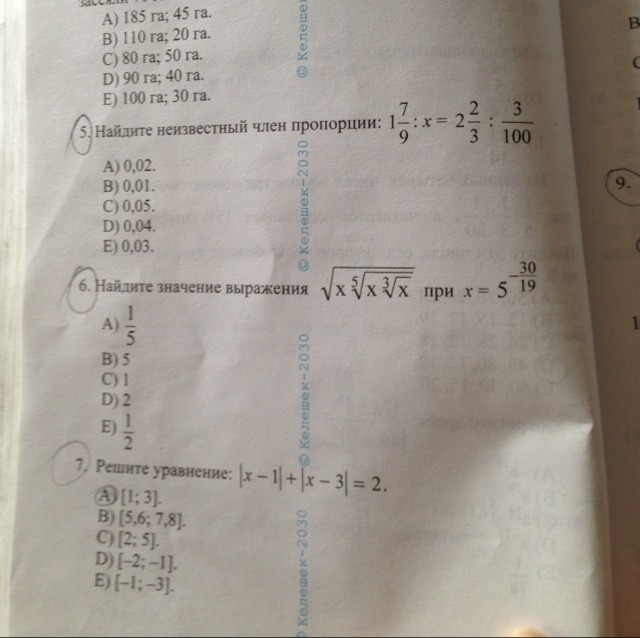 A) 185 га; 45 га.
B) 110 га; 20 га.
C) 80 га; 50 га.
D) 90 га; 40 га.
E) 100 га; 30 га.
5. Найдите неизвестный член пропорции: 1 7/9 : x = 2 2/3 : 3/100
A) 0,02.
B) 0,01.
C) 0,05.
D) 0,04.
E) 0,03.
6. Найдите значение выражения √(x ⁵√(x ³√x)) при x = 5^(−30/19)
A) 1/5
B) 5
C) 1
D) 2
E) 1/2
7. Решите уравнение: |x − 1| + |x − 3| = 2.
A) [1; 3].
B) [5,6; 7,8].
C) [2; 5].
D) [−2; −1].
E) [−1; −3].
© Келешек−2030
© Келешек−2030
© Келешек−2030
© Келешек−2030
9.